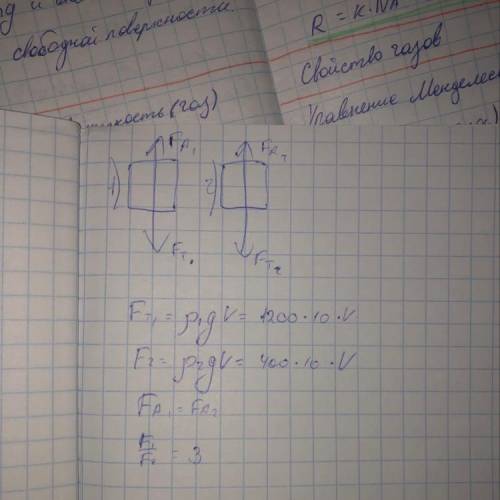 свободной поверхности
(газ)
R = k·NA
Свойство газов
Уравнение Менделеев
1) FA₁ 2) FA₂
Fт₁ Fт₂
Fт₁ = ρ₁gV = 1200·10·V
F₂ = ρ₂gV = 400·10·V
FA₁ = FA₂
F₁/F₂ = 3